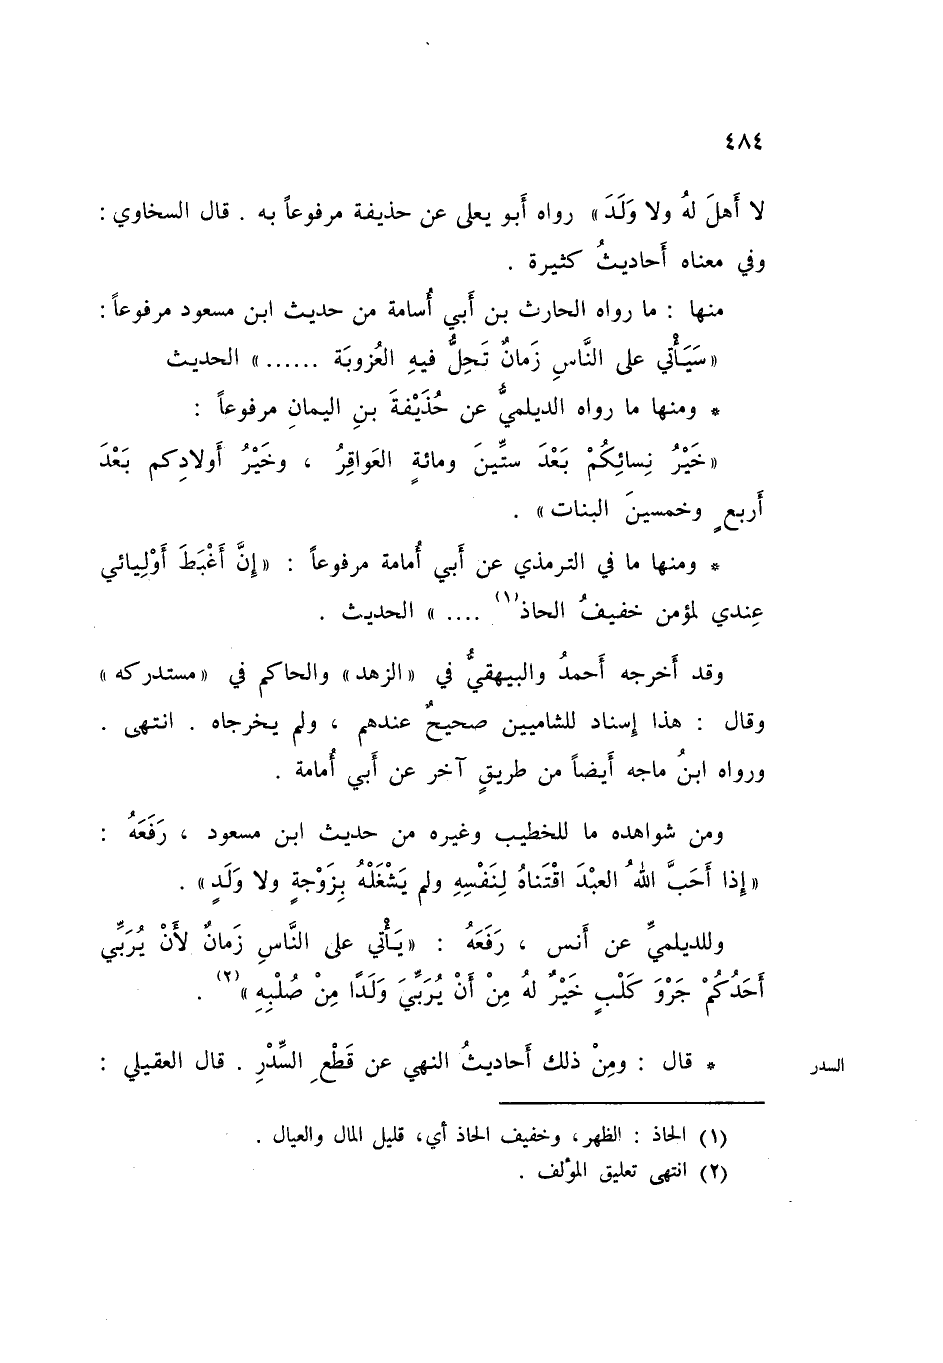 ٤٨٤
لا أَهلَ لهُ ولا وَلَدَ» رواه أَبو يعلى عن حذيفة مرفوعاً به . قال السخاوي :
وفي معناه أَحاديثُ كثيرة .
منها : ما رواه الحارث بن أَبي أُسامة من حديث ابن مسعود مرفوعاً :
«سَيَأْتي على النَّاسِ زَمانٌ تَحِلُّ فيهِ العُزوبَة ......» الحديث
* ومنها ما رواه الديلميُّ عن حُذَيْفةَ بنِ اليمانِ مرفوعاً :
«خَيْرُ نِسائِكُمْ بَعْدَ ستِّينَ ومائةٍ العَواقِرُ ، وخَيْرُ أَولادِكم بَعْدَ
أَربعٍ وخمسينَ البنات» .
* ومنها ما في الترمذي عن أَبي أُمامة مرفوعاً : «إِنَّ أَغْبَطَ أَوْلِيائي
عِندي لمؤمن خفيفُ الحاذ(١) .... » الحديث .
وقد أَخرجه أَحمدُ والبيهقيُّ في «الزهد» والحاكم في «مستدركه»
وقال : هذا إِسناد للشاميين صحيحٌ عندهم ، ولم يخرجاه . انتهى .
ورواه ابنُ ماجه أَيضاً من طريقٍ آخر عن أَبي أُمامة .
ومن شواهده ما للخطيب وغيره من حديث ابن مسعود ، رَفَعَهُ :
«إِذا أَحَبَّ اللهُ العبْدَ اقْتَناهُ لِنَفْسِهِ ولم يَشْغَلْهُ بِزَوْجةٍ ولا وَلَدٍ» .
وللديلميِّ عن أَنس ، رَفَعَهُ : «يَأْتي على النَّاسِ زَمانٌ لأَنْ يُرَبِّي
أَحَدُكُمْ جَرْوَ كَلْبٍ خَيْرٌ لهُ مِنْ أَنْ يُرَبِّيَ وَلَدًا مِنْ صُلْبِهِ»(٢) .
* قال : ومِنْ ذلك أَحاديثُ النهي عن قَطْعِ السِّدْرِ . قال العقيلي :
السدر
(١) الحاذ : الظهر، وخفيف الحاذ أي، قليل المال والعيال .
(٢) انتهى تعليق المؤلف .